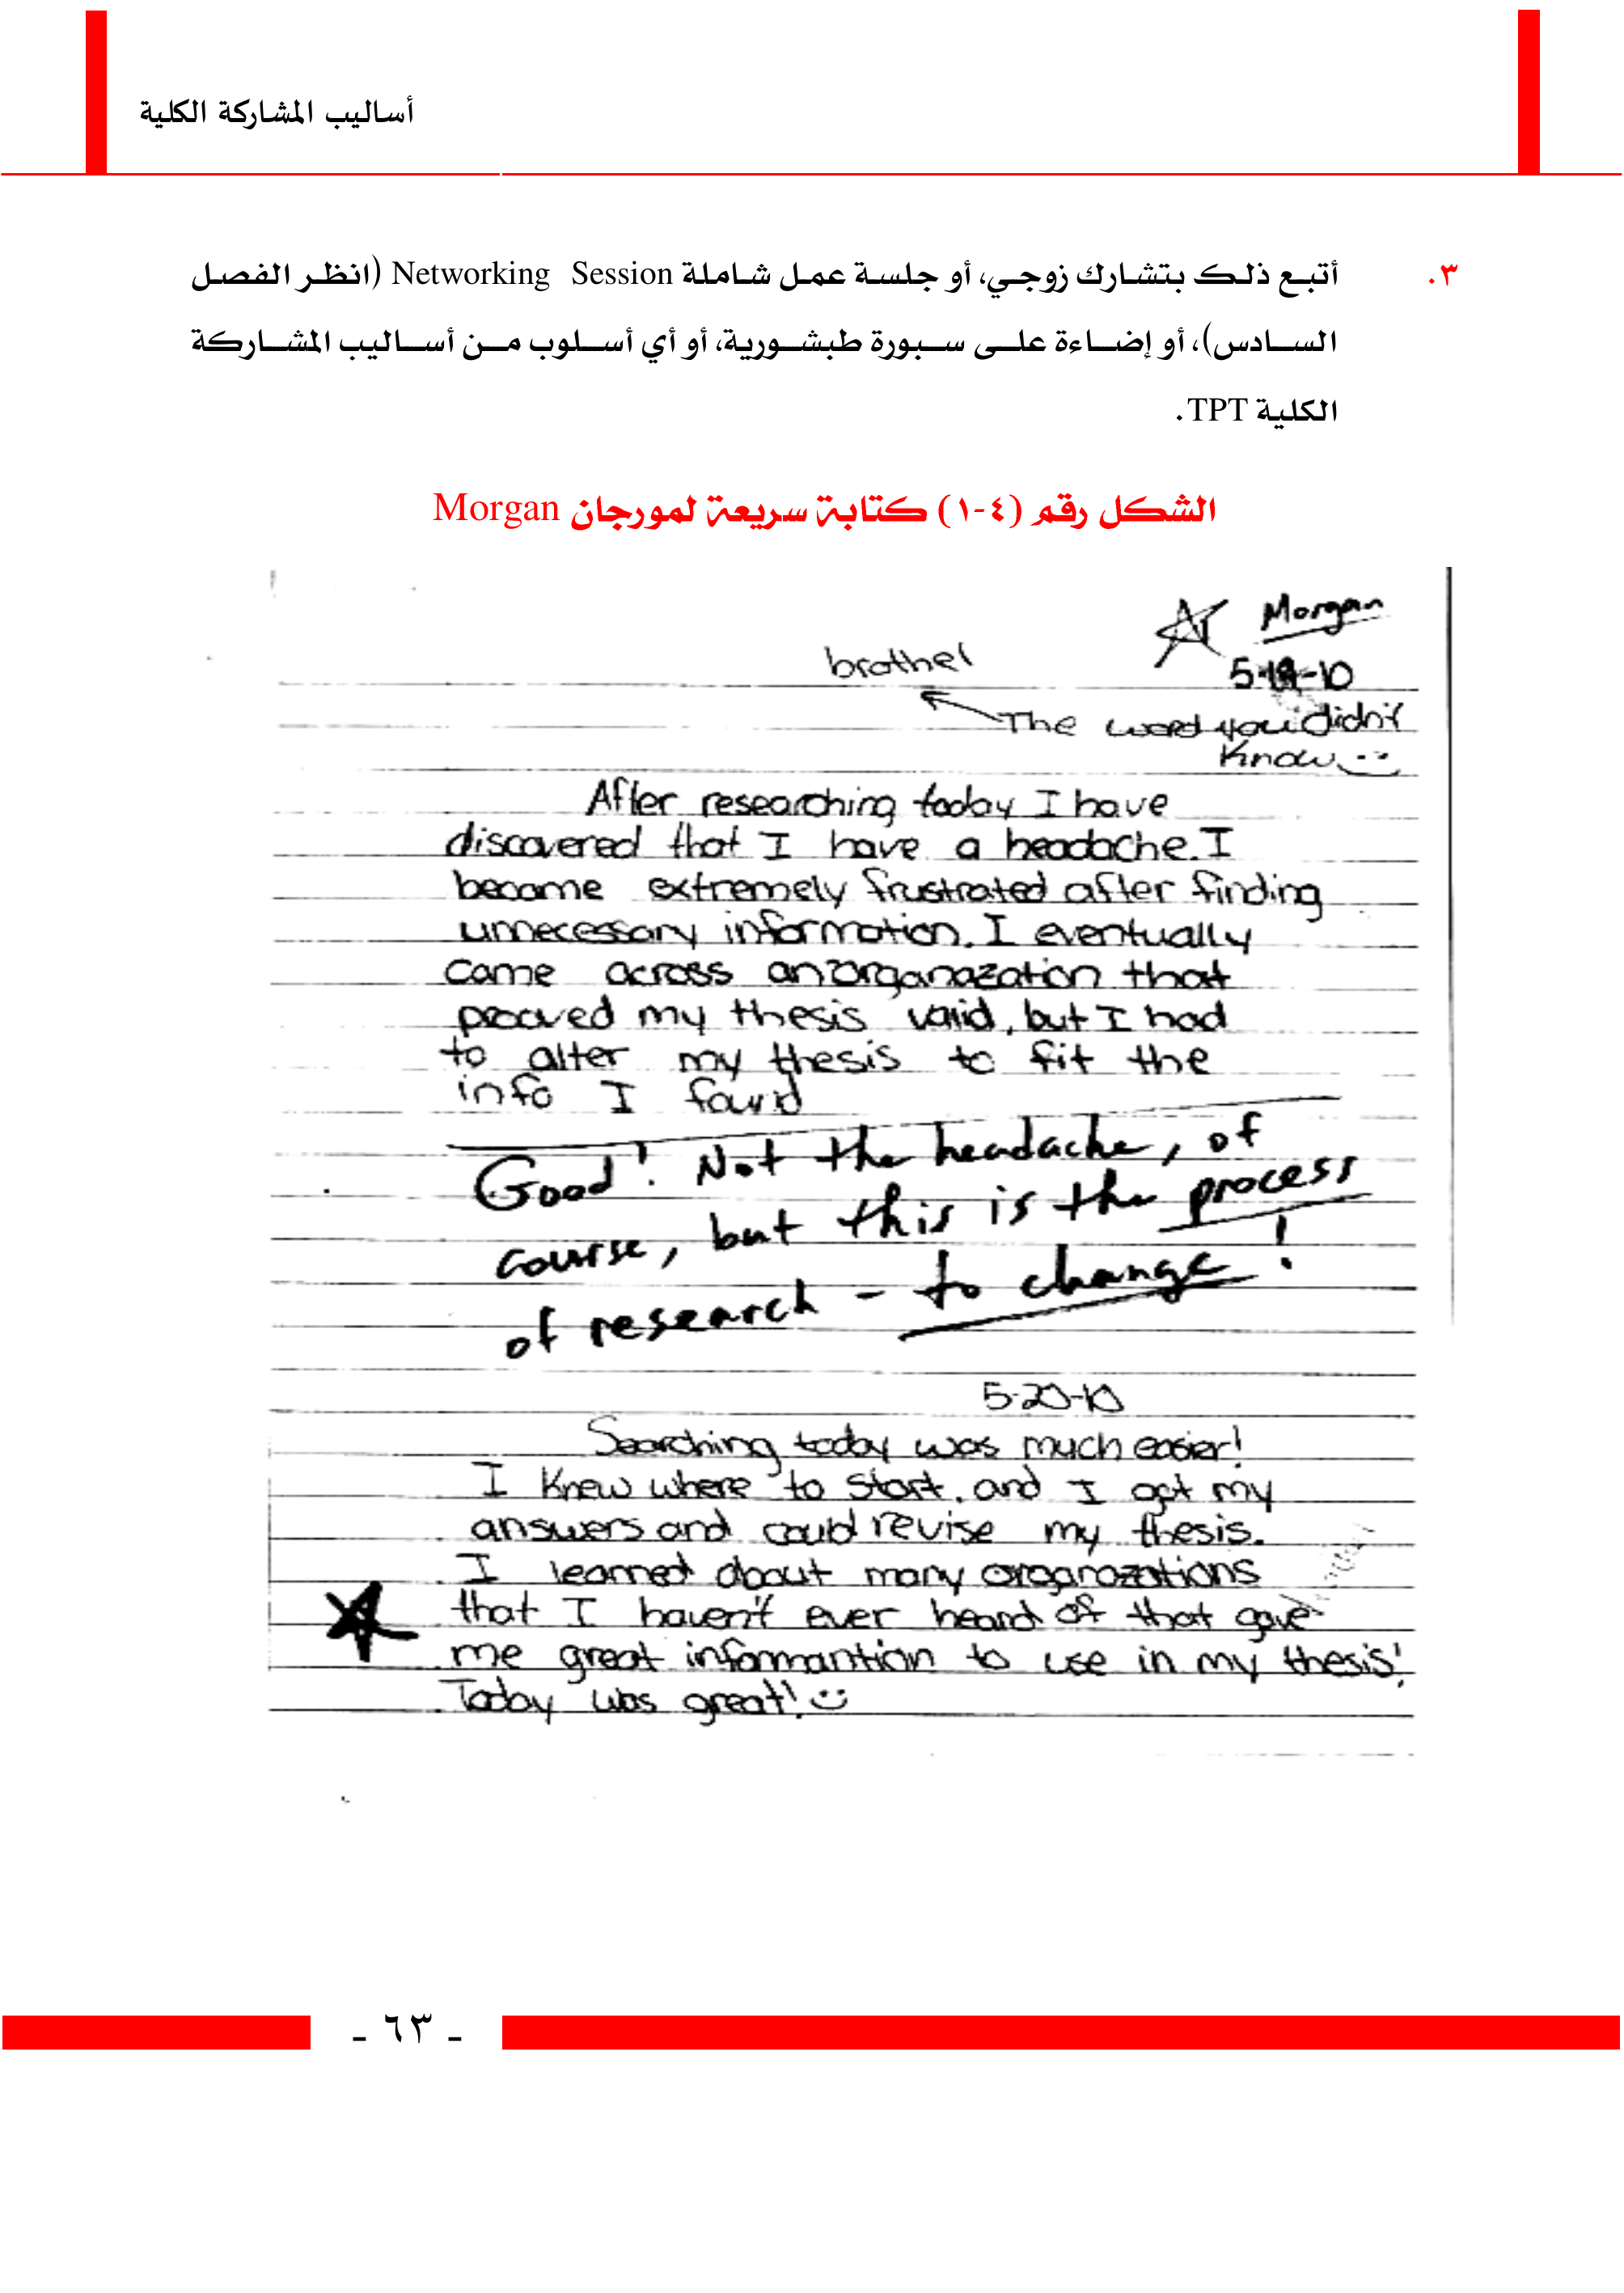 أساليب المشاركة الكلية
٣. أتبع ذلك بتشارك زوجي، أو جلسة عمل شاملة Networking Session (انظر الفصل
السادس)، أو إضاءة على سبورة طبشورية، أو أي أسلوب من أساليب المشاركة
الكلية TPT.
الشكل رقم (٤-١) كتابة سريعة لمورجان Morgan
Morgan
brothel
5-19-10
The word you didn't
know
After researching today I have
discovered that I have a headache. I
became extremely frustrated after finding
unnecessary information. I eventually
came across an organazation that
prooved my thesis valid, but I had
to alter my thesis to fit the
info I found
Good! Not the headache, of
course, but this is the process
of research - to change!
5-20-10
Searching today was much easier!
I knew where to start, and I got my
answers and could revise my thesis.
I learned about many organazations
that I haven't ever heard of that gave
me great informantion to use in my thesis!
Today was great! :)
- ٦٣ -